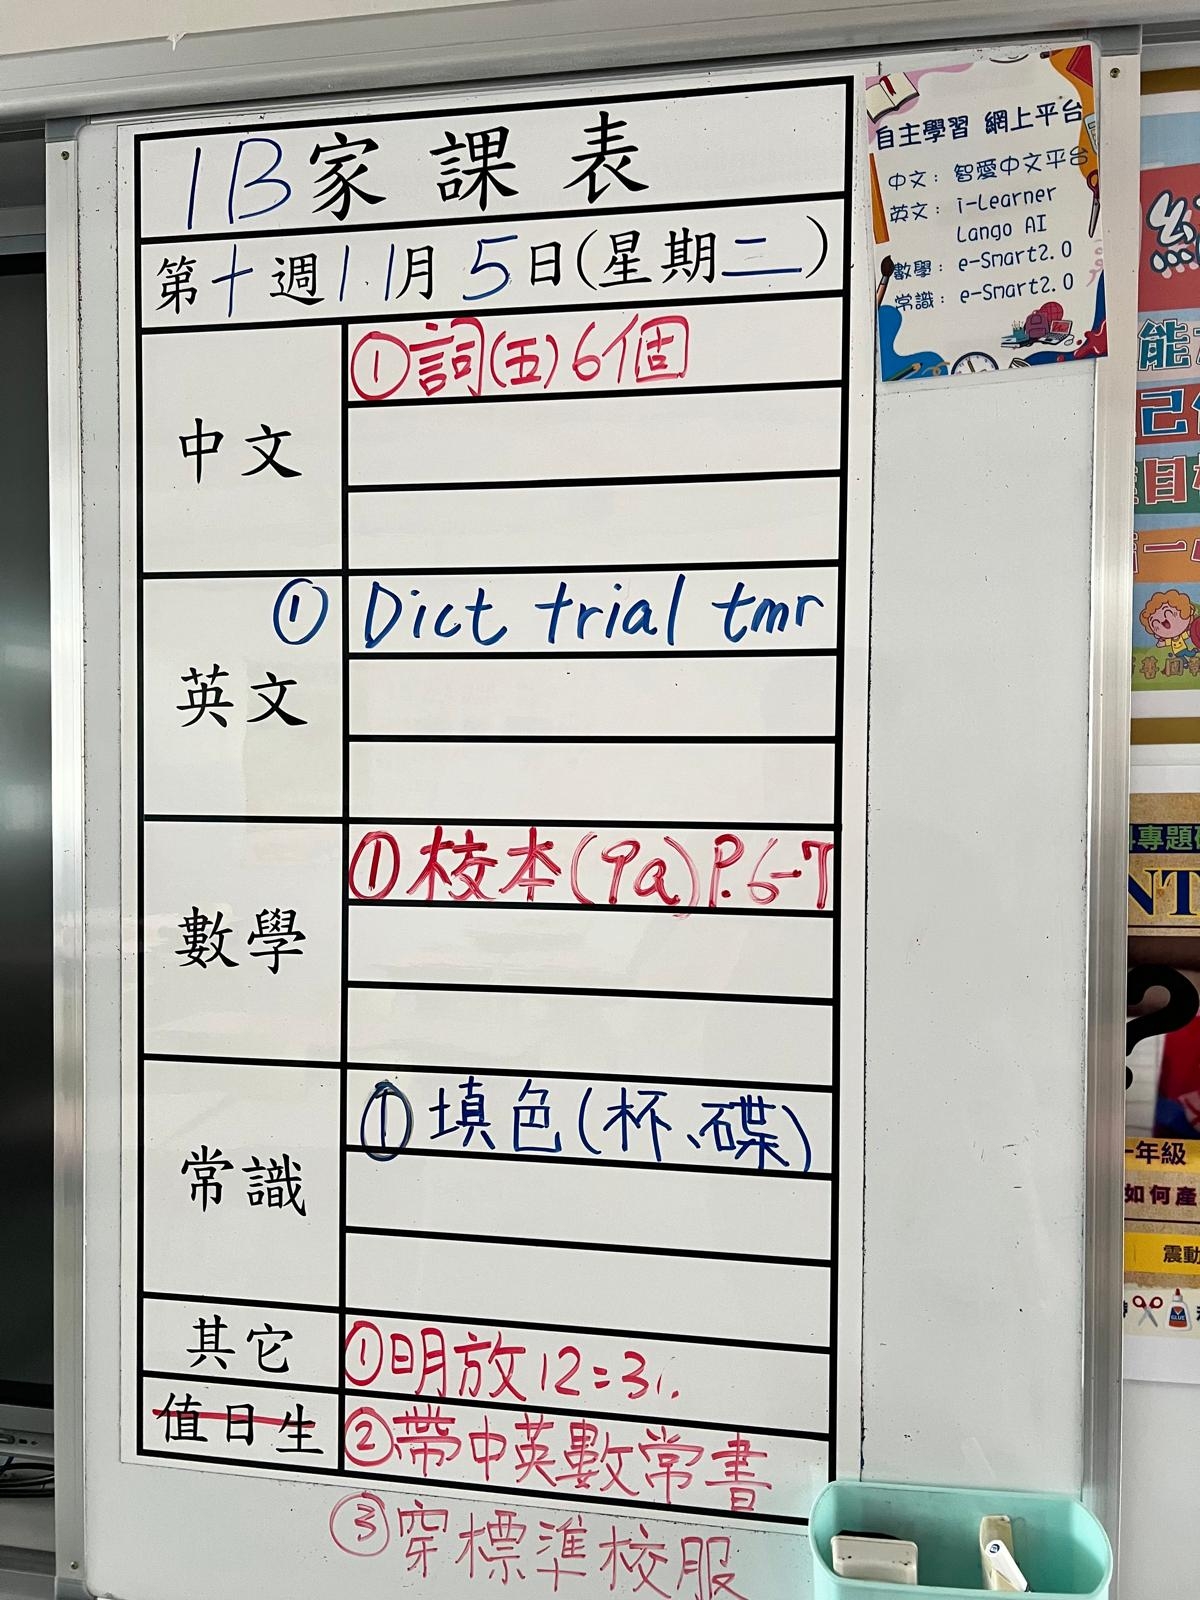 1B家課表
第十週11月5日(星期二)
中文
①詞(五)6個
英文
① Dict trial tmr
數學
①校本(9a)P.6-7
常識
①填色(杯、碟)
其它
①明放12:31.
值日生
②帶中英數常書
③穿標準校服
自主學習 網上平台
中文: 智愛中文平台
英文: i-Learner
Lango AI
數學: e-Smart2.0
常識: e-Smart2.0
能
己
目
一
專題
NT
?
一年級
如何產
震動
GLUE